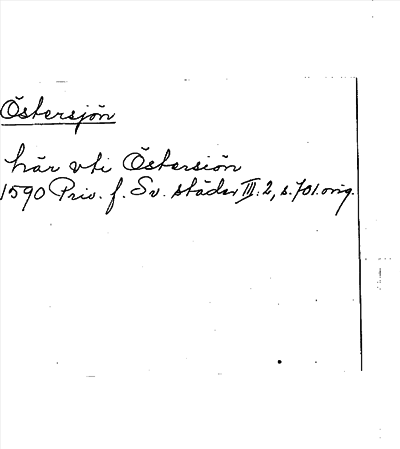 Östersjön
här vti Östersiön
1590 Priv. f. Sv. städer III:2, s. 701. orig.